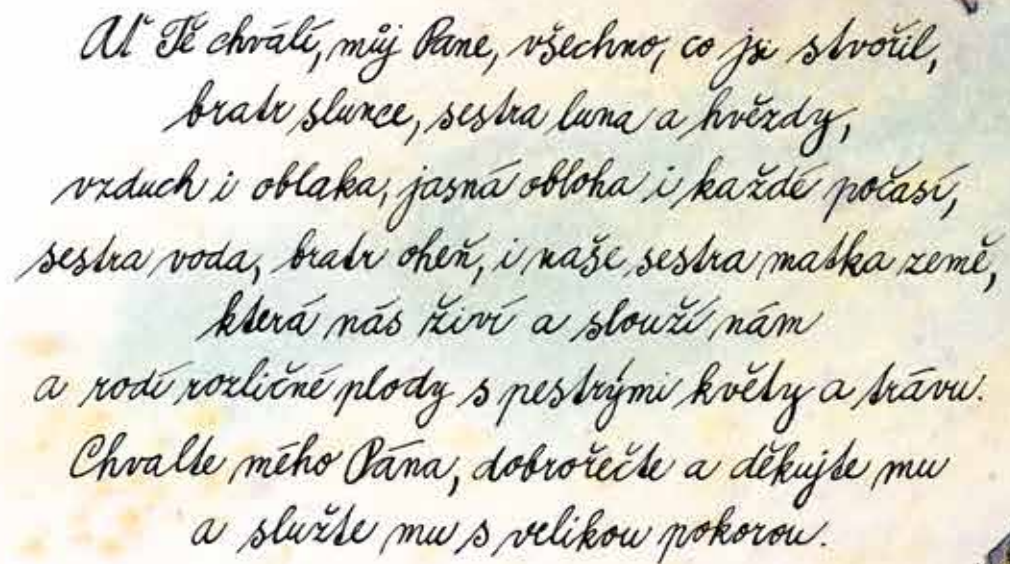 Ať Tě chválí, můj Pane, všechno, co jsi stvořil,
bratr slunce, sestra luna a hvězdy,
vzduch i oblaka, jasná obloha i každé počasí,
sestra voda, bratr oheň, i naše sestra matka země,
která nás živí a slouží nám
a rodí rozličné plody s pestrými květy a trávu.
Chvalte mého Pána, dobrořečte a děkujte mu
a služte mu s velikou pokorou.